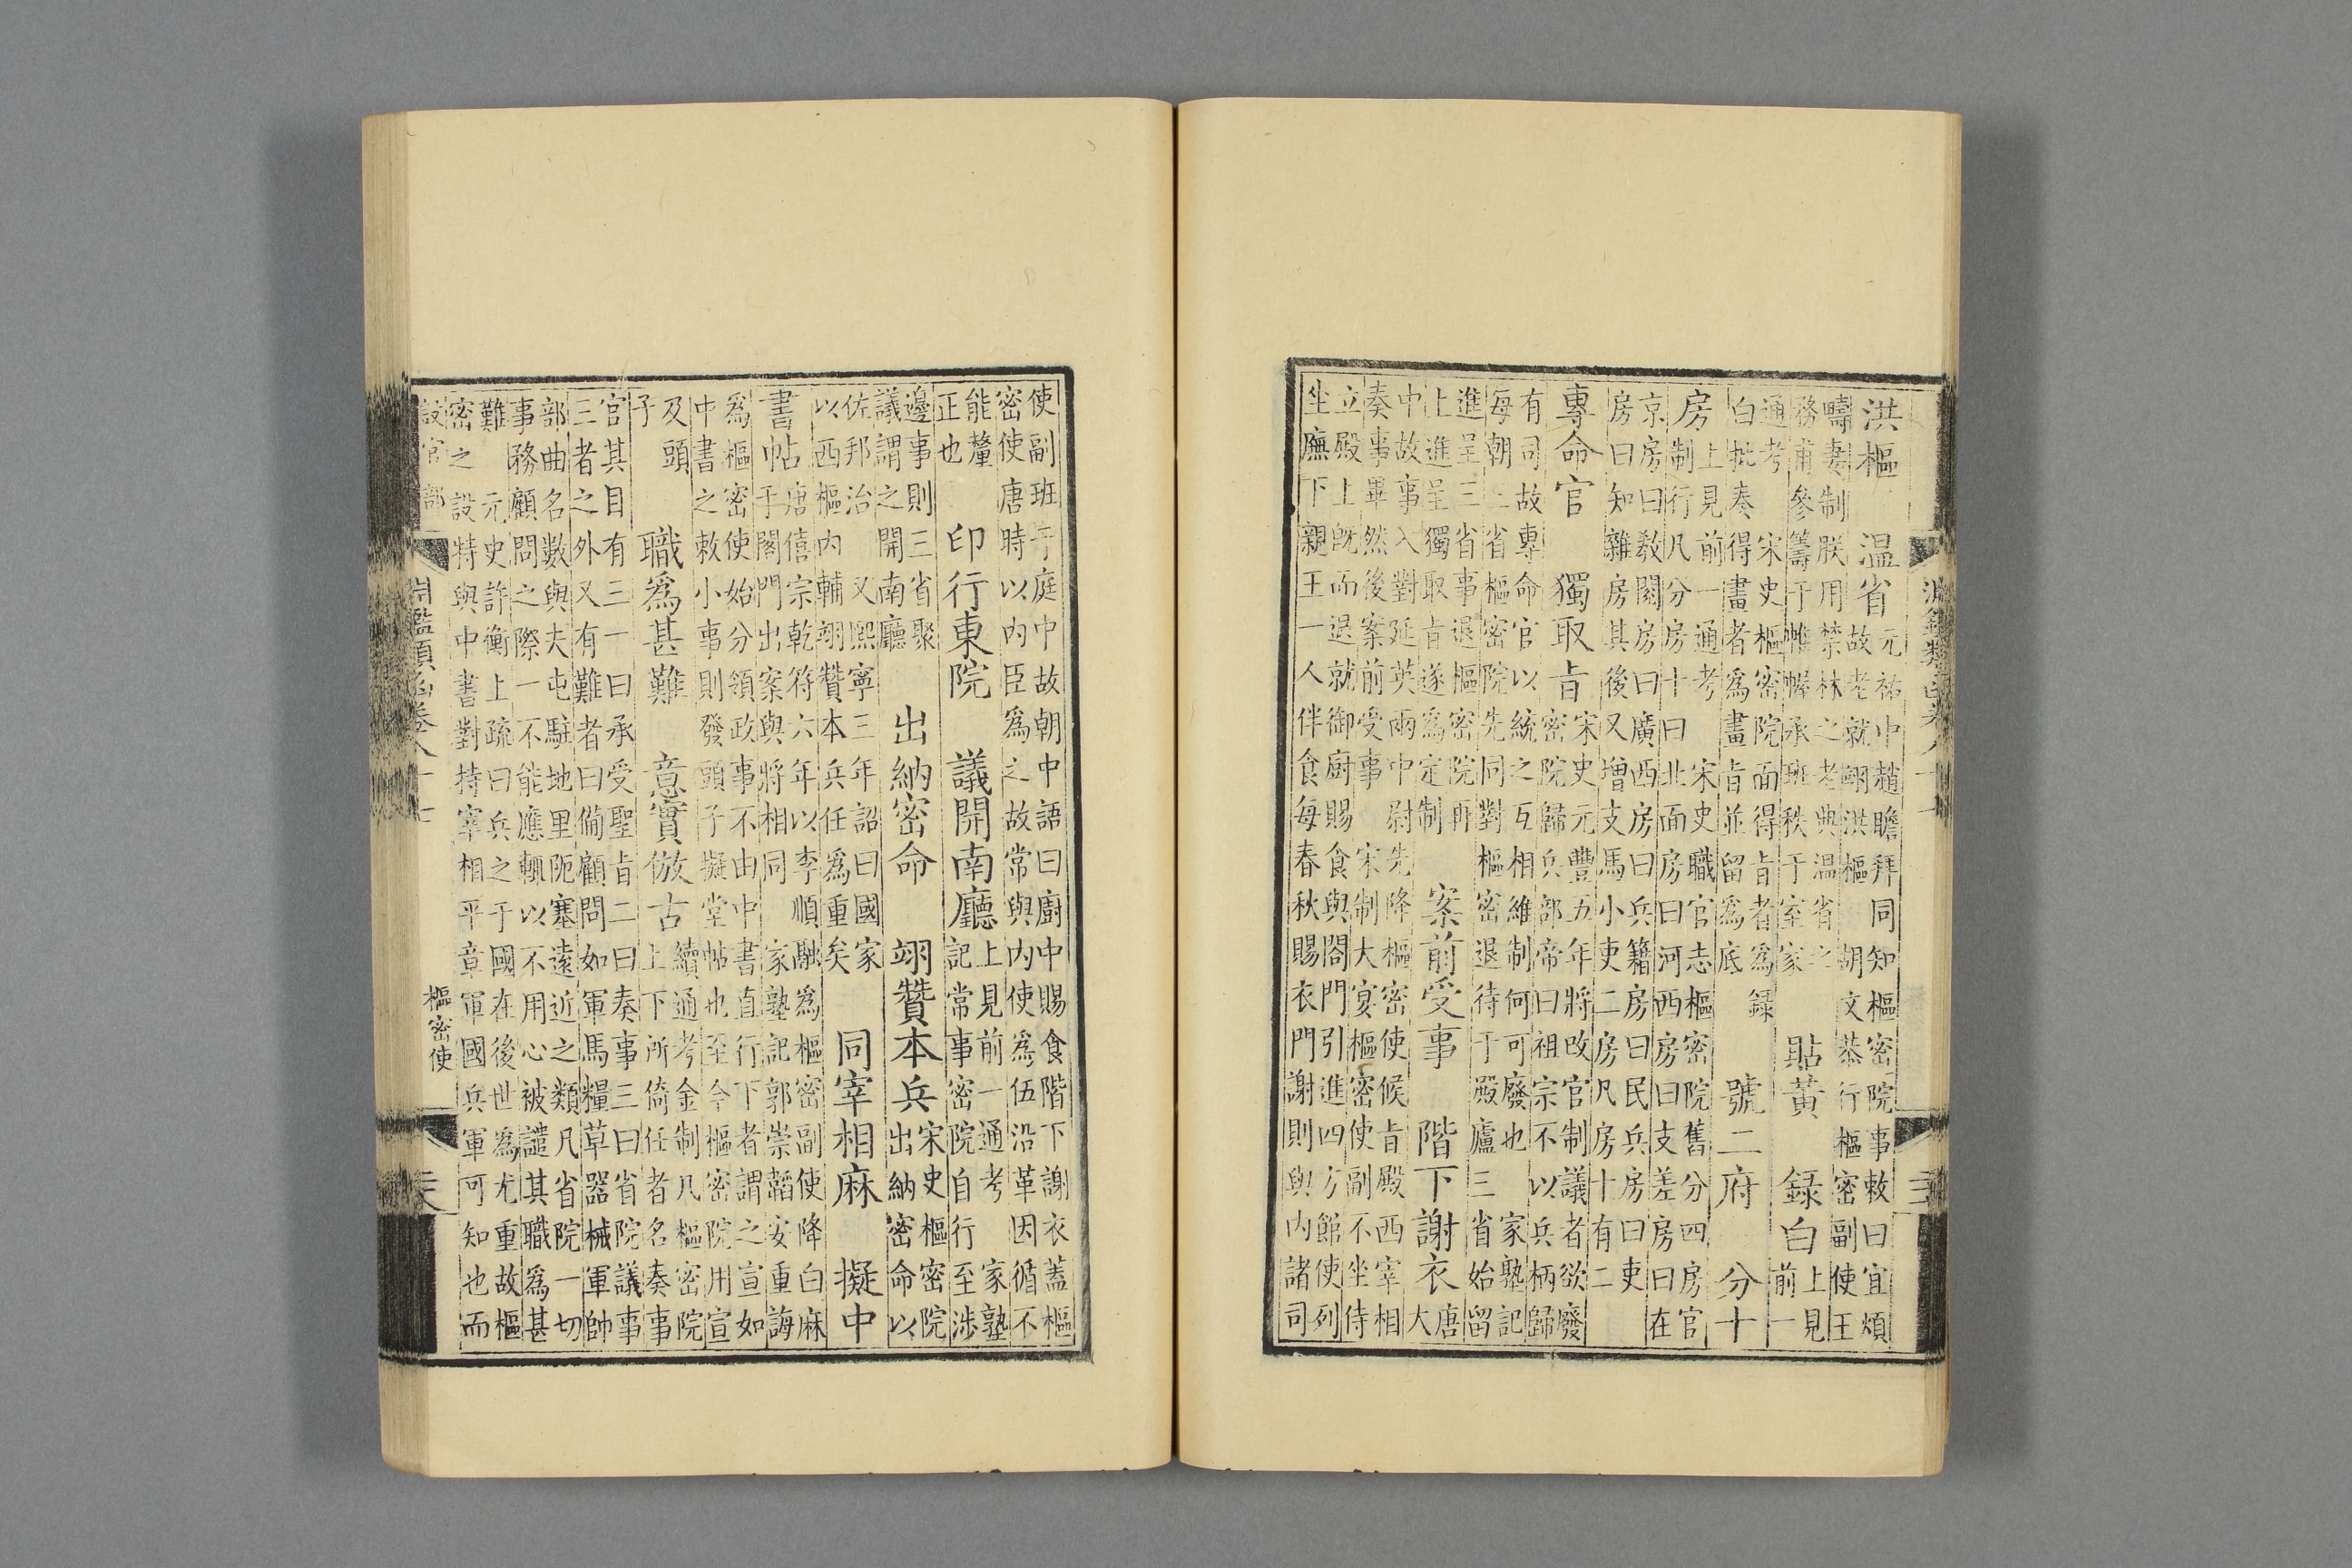 洪樞　溫省
元祐中趙瞻拜同知樞密院事敕曰宜煩
故老就翊洪樞　胡文恭行樞密副使王
疇妻制朕用禁林之老典溫省之
務甫參籌于帷幄承班秩于室家
貼黃　錄白
上見
前一
通考　宋史樞密院面得旨者為錄
白批奏得畫者為畫旨並留為底
號二府　分十
房
上見前一通考　宋史職官志樞密院舊分四房官
制行凡分房十曰北面房曰河西房曰支差房曰在
京房曰教閱房曰廣西房曰兵籍房曰民兵房曰吏
房曰知雜房其後又增支馬小吏二房凡房十有二
專命官　獨取旨
宋史元豐五年將改官制議者欲廢
密院歸兵部帝曰祖宗不以兵柄歸
有司故專命官以統之互相維制何可廢也　家塾記
每朝三省樞密院先同對樞密退待于殿廬三省始留
進呈三省事退樞密院再
上進呈獨取旨遂為定制
案前受事　階下謝衣
唐
大
中故事入對延英兩中尉先降樞密使候旨殿西宰相
奏事畢然後案前受事　宋制大宴樞密使副不坐侍
立殿上既而退就御廚賜食與閤門引進四方館使列
坐廡下親王一人伴食每春秋賜衣門謝則與內諸司
使副班于庭中故朝中語曰廚中賜食階下謝衣蓋樞
密使唐時以內臣為之故常與內使為伍沿革因循不
能釐
正也
印行東院　議開南廳
上見前一通考　家塾
記常事密院自行至涉
邊事則三省聚
議謂之開南廳
出納密命　翊贊本兵
宋史樞密院
出納密命以
佐邦治　又熙寧三年詔曰國家
以西樞內輔翊贊本兵任為重矣
同宰相麻　擬中
書帖
唐僖宗乾符六年以李順融為樞密副使降白麻
于閤門出案與將相同　家塾記郭崇韜安重誨
為樞密使始分領政事不由中書直行下者謂之宣如
中書之敕小事則發頭子擬堂帖也至今樞密院用宣
及頭
子
職為甚難　意實倣古
續通考金制凡樞密院
上下所倚任者名奏事
官其目有三一曰承受聖旨二曰奏事三曰省院議事
三者之外又有難者曰備顧問如軍馬糧草器械軍帥
部曲名數與夫屯駐地里阨塞遠近之類凡省院一切
事務顧問之際一不能應輒以不用心被譴其職為甚
難　元史許衡上疏曰兵之于國在後世為尤重故樞
密之設特與中書對持宰相平章軍國兵軍可知也而
設官部　淵鑑類函卷八十七　樞密使